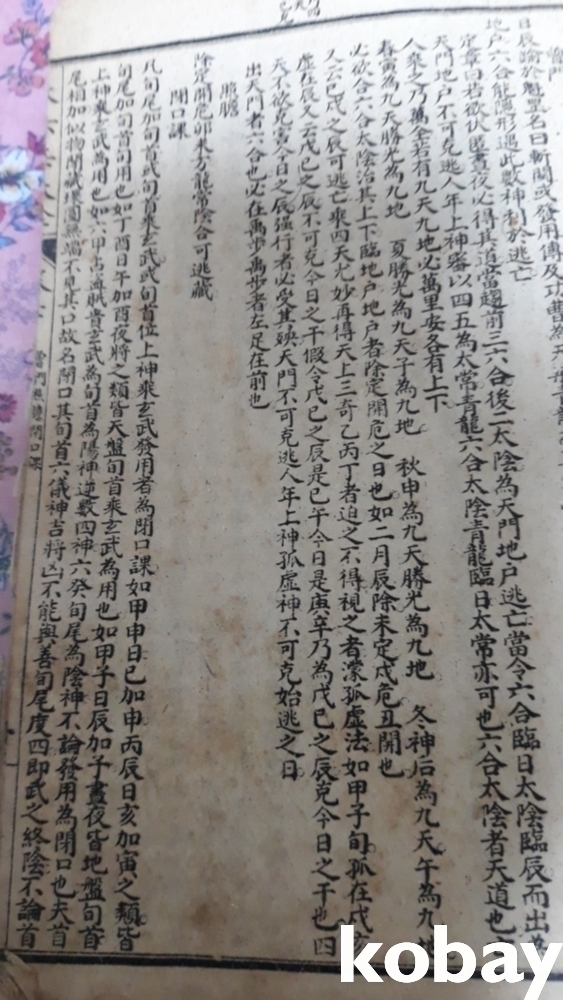 日辰論於魁罡名曰斬關或發用傳及功曹為天
地戶六合能隱形遇此數神利於逃亡
定章曰若欲伏匿晝夜必得其道當趨前三六合後二太陰為天門地戶逃亡當令六合臨日太陰臨辰而出
天門地戶不可克逃人年上神審以四五為太常青龍六合太陰青龍臨日太常亦可也六合太陰者天道也
人乘之乃萬全若有九天九地必萬里安各有上下
春寅為九天勝光為九地 夏勝光為九天子為九地 秋申為九天勝光為九地 冬神后為九天午為九地
必欲合六合太陰治其上下臨地戶地戶者除定開危之日也如二月辰除未定戌危丑開也
又云己戌之辰可逃亡乘四天尤妙再得天上三奇乙丙丁者迫之不得視之者濛孤虛法如甲子旬孤在戌亥
虛在辰又云戊己之辰不可克今日之干假令戊己之辰是巳午今日是庚辛乃為戊巳之辰克今日之干也四
天不欲克寅今日之辰強行者必受其殃天門不可克逃人年上神孤虛神不可克始逃之日
出天門者六合也必在禹步禹步者左足在前也
照膽
除定開危卯未方龍常陰合可逃藏
閉口課
凡旬尾加旬首或旬首乘玄武武旬首位上神乘玄武發用者為閉口課如甲申日巳加申丙辰日亥加寅之類皆
旬尾加旬首旬用也如丁酉日午加酉夜將之類皆天盤旬首乘玄武為用也如甲子日辰加子晝夜皆地盤旬首
上神乘玄武為用也如六甲占盜賊貴玄武為旬首為陽神逆數四神六癸旬尾為陰神不論發用為閉口也夫首
尾相加似物閉緘環圓無端不見其口故名閉口其旬首六儀神吉將凶不能與善旬尾度四即武之終陰不論首
閉口課
kobay